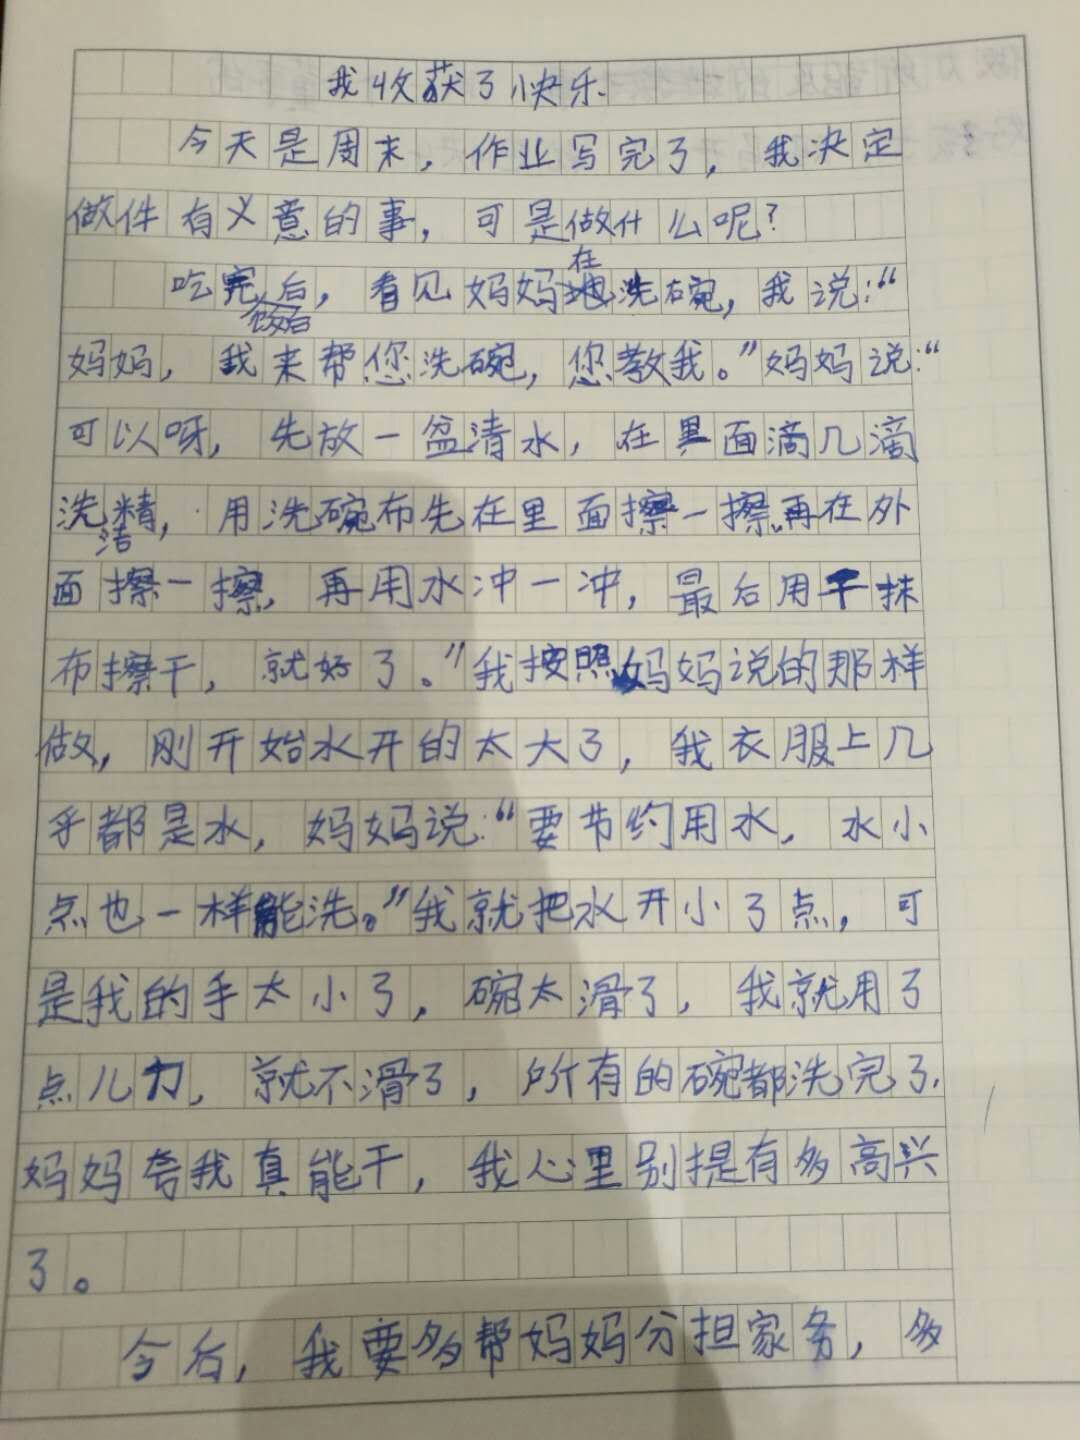 我收获了快乐.
今天是周末，作业写完了，我决定
做件有义意的事，可是做什么呢?
在
吃完后，看见妈妈洗碗，我说:“
饭后
妈妈，我来帮您洗碗，您教我。”妈妈说:“
可以呀，先放一盆清水，在里面滴几滴
洗精，用洗碗布先在里面擦一擦,再在外
洁
面擦一擦，再用水冲一冲，最后用干抹
布擦干，就好了。”我按照妈妈说的那样
做，刚开始水开的太大了，我衣服上几
乎都是水，妈妈说:“要节约用水，水小
点也一样能洗。”我就把水开小了点，可
是我的手太小了，碗太滑了，我就用了
点儿力，就不滑了，所有的碗都洗完了,
妈妈夸我真能干，我心里别提有多高兴
了。
今后，我要多帮妈妈分担家务，多